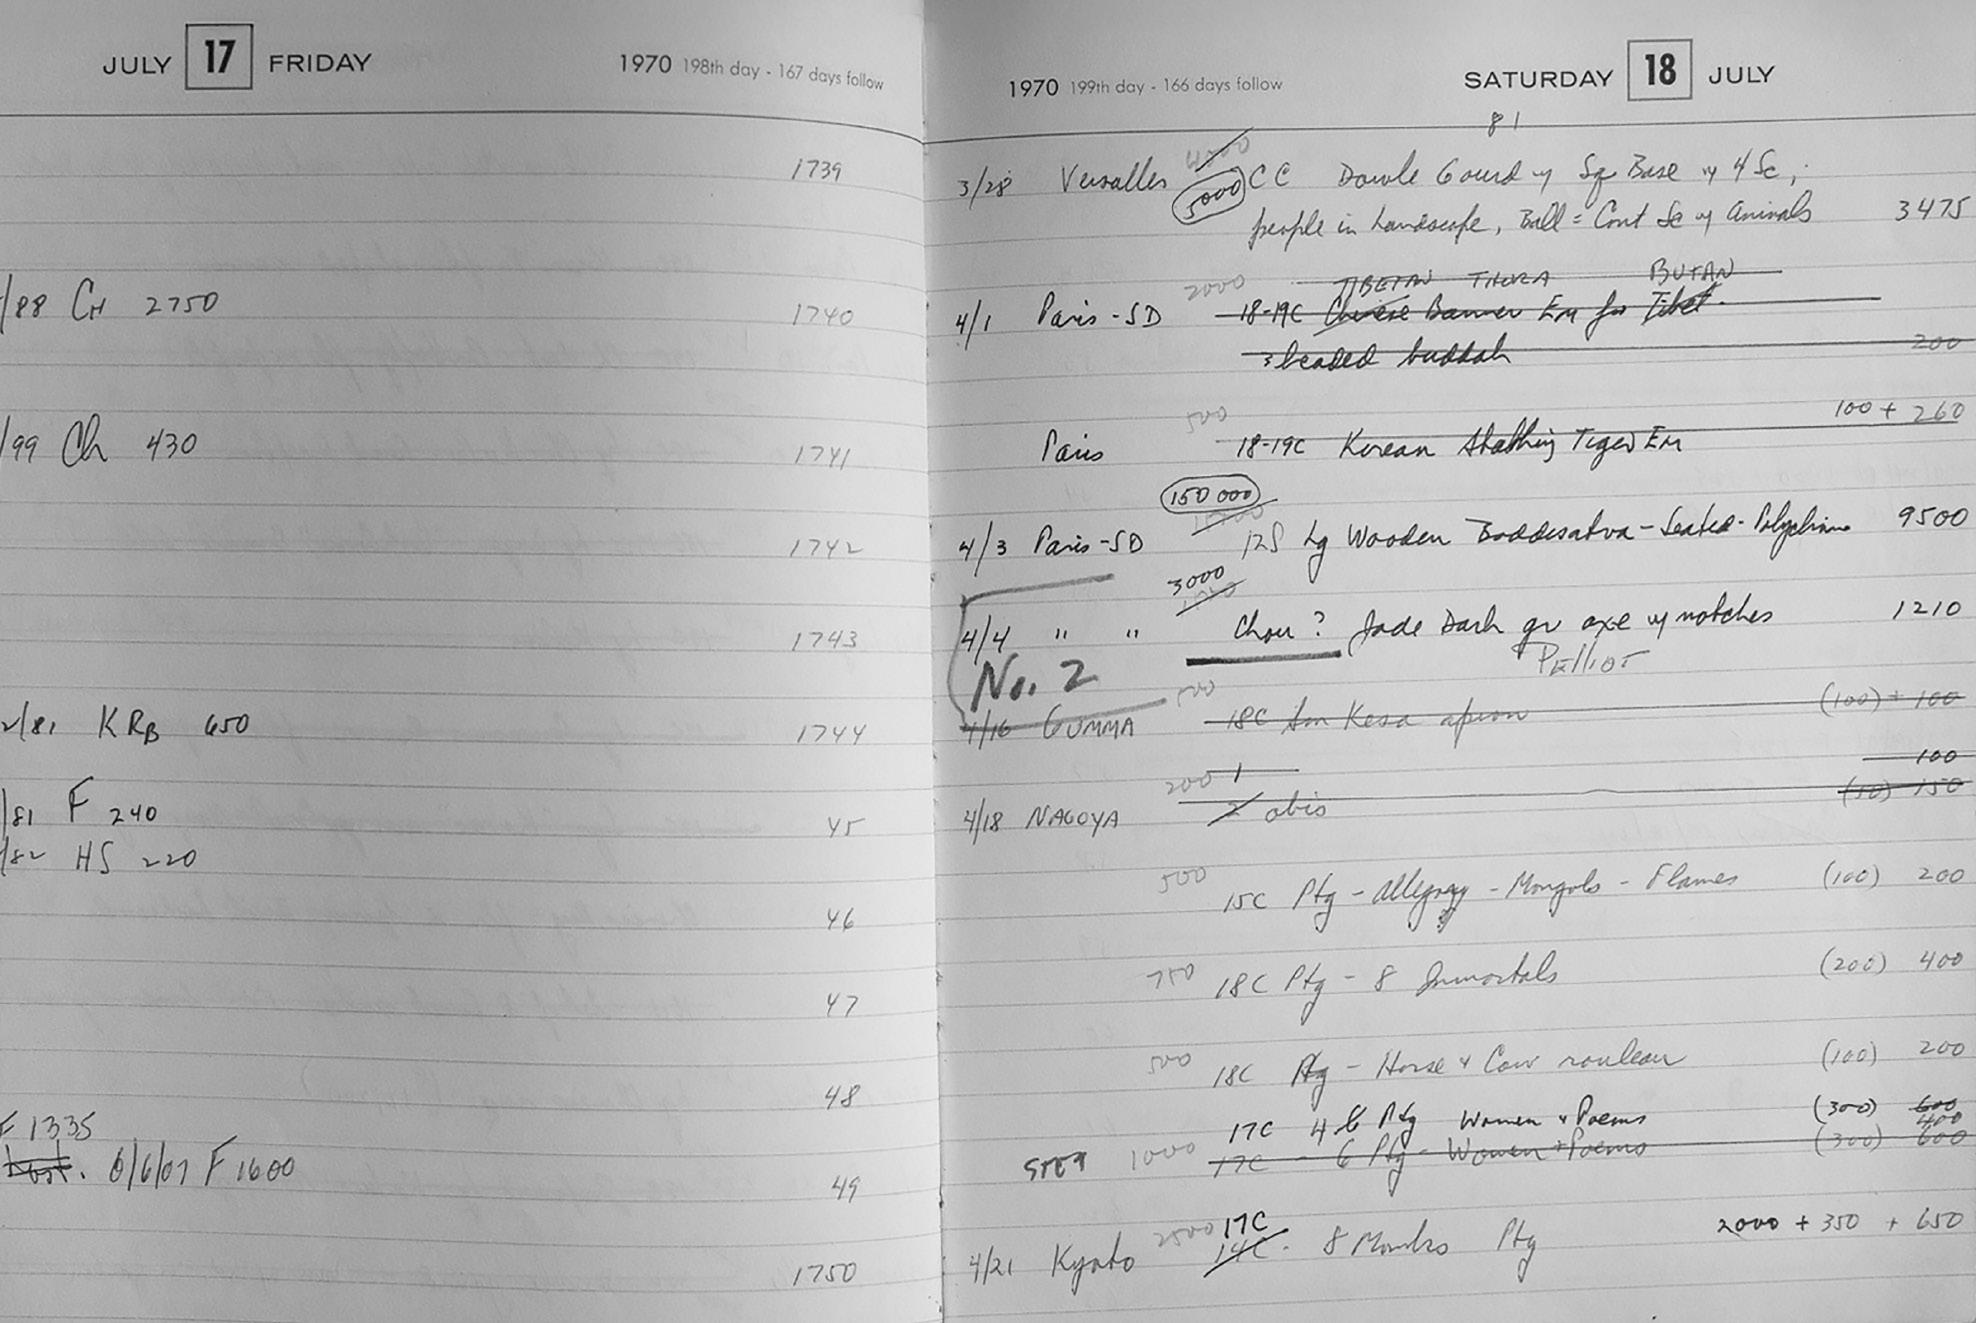 JULY 17 FRIDAY 1970 198th day - 167 days follow
1739
/88 CH 2750 1740
/99 Ch 430 1741
1742
1743
2/81 KRB 650 1744
/81 F 240 45
/82 HS 220
46
47
48
F 1335
6/6/07 F 1600
49
1750
1970 199th day - 166 days follow SATURDAY 18 JULY
81
4000
3/28 Versalles 5000 CC Double Gourd w/ Sq Base w/ 4 Sc;
people in Landscape, Ball = Cont Sc w/ animals 3475
2000 TIBETAN BUTAN
4/1 Paris-SD 18-19C Chinese Banner Em for Tibet.
3 beaded buddah 200
500 100 + 260
Paris 18-19C Korean Tiger Em
150 000
4/3 Paris-SD 12S Lg Wooden Boddesatva - Seated - Polychrome 9500
3000
4/4 " " Chou? Jade Dark gr axe w/ notches 1210
PElliOT
No. 2
4/16 GUMMA 500 18C Kesa apron (100) + 100
100
200 1 (50) 150
4/18 NAGOYA 2 obis
500 15C Ptg - allegory - Mongols - Flames (100) 200
750 18C Ptg - 8 Immortals (200) 400
500 18C Ptg - Horse & Cow rouleau (100) 200
17C 4 6 Ptg Women & Poems (300) 600
400
1000 17C - 6 Ptg - Women & Poems (300) 600
2500 17C 2000 + 350 + 650
4/21 Kyoto 14C - 8 Monks Ptg